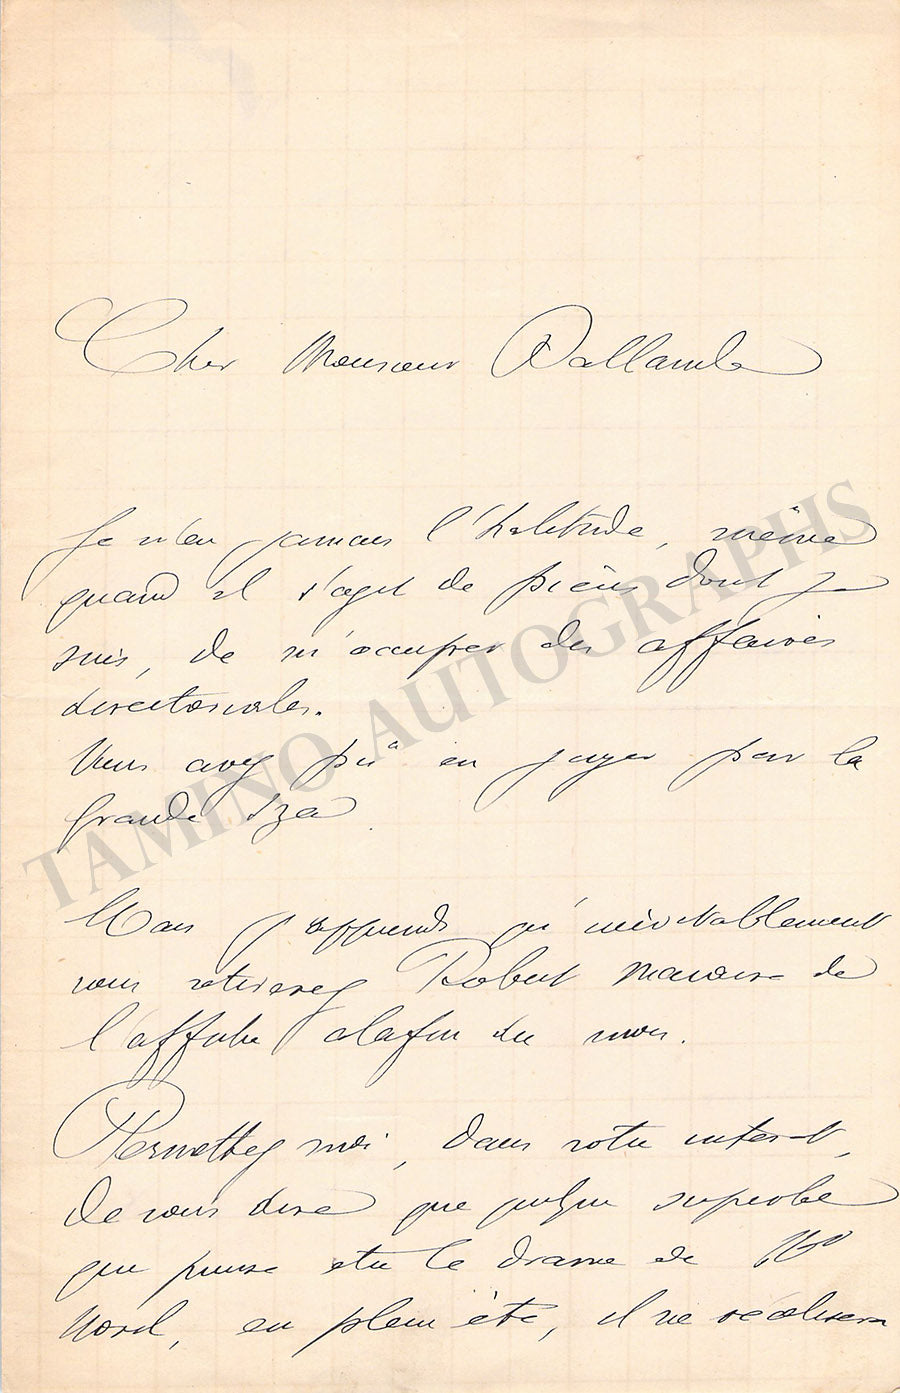 Cher Monsieur Ballande
Je n'ai jamais l'habitude, même
quand il s'agit de pièces dont je
suis, de m'occuper des affaires
directoriales.
Vous avez pû en juger par la
Grande Iza
Mais j'apprends qu'inévitablement
vous retirerez Robert Macaire de
l'affiche à la fin du mois.
Permettez moi, dans votre interet,
de vous dire que quelque superbe
que puisse etre le drame de Mr
Nord, en plein été, il ne réalisera
TAMINO AUTOGRAPHS